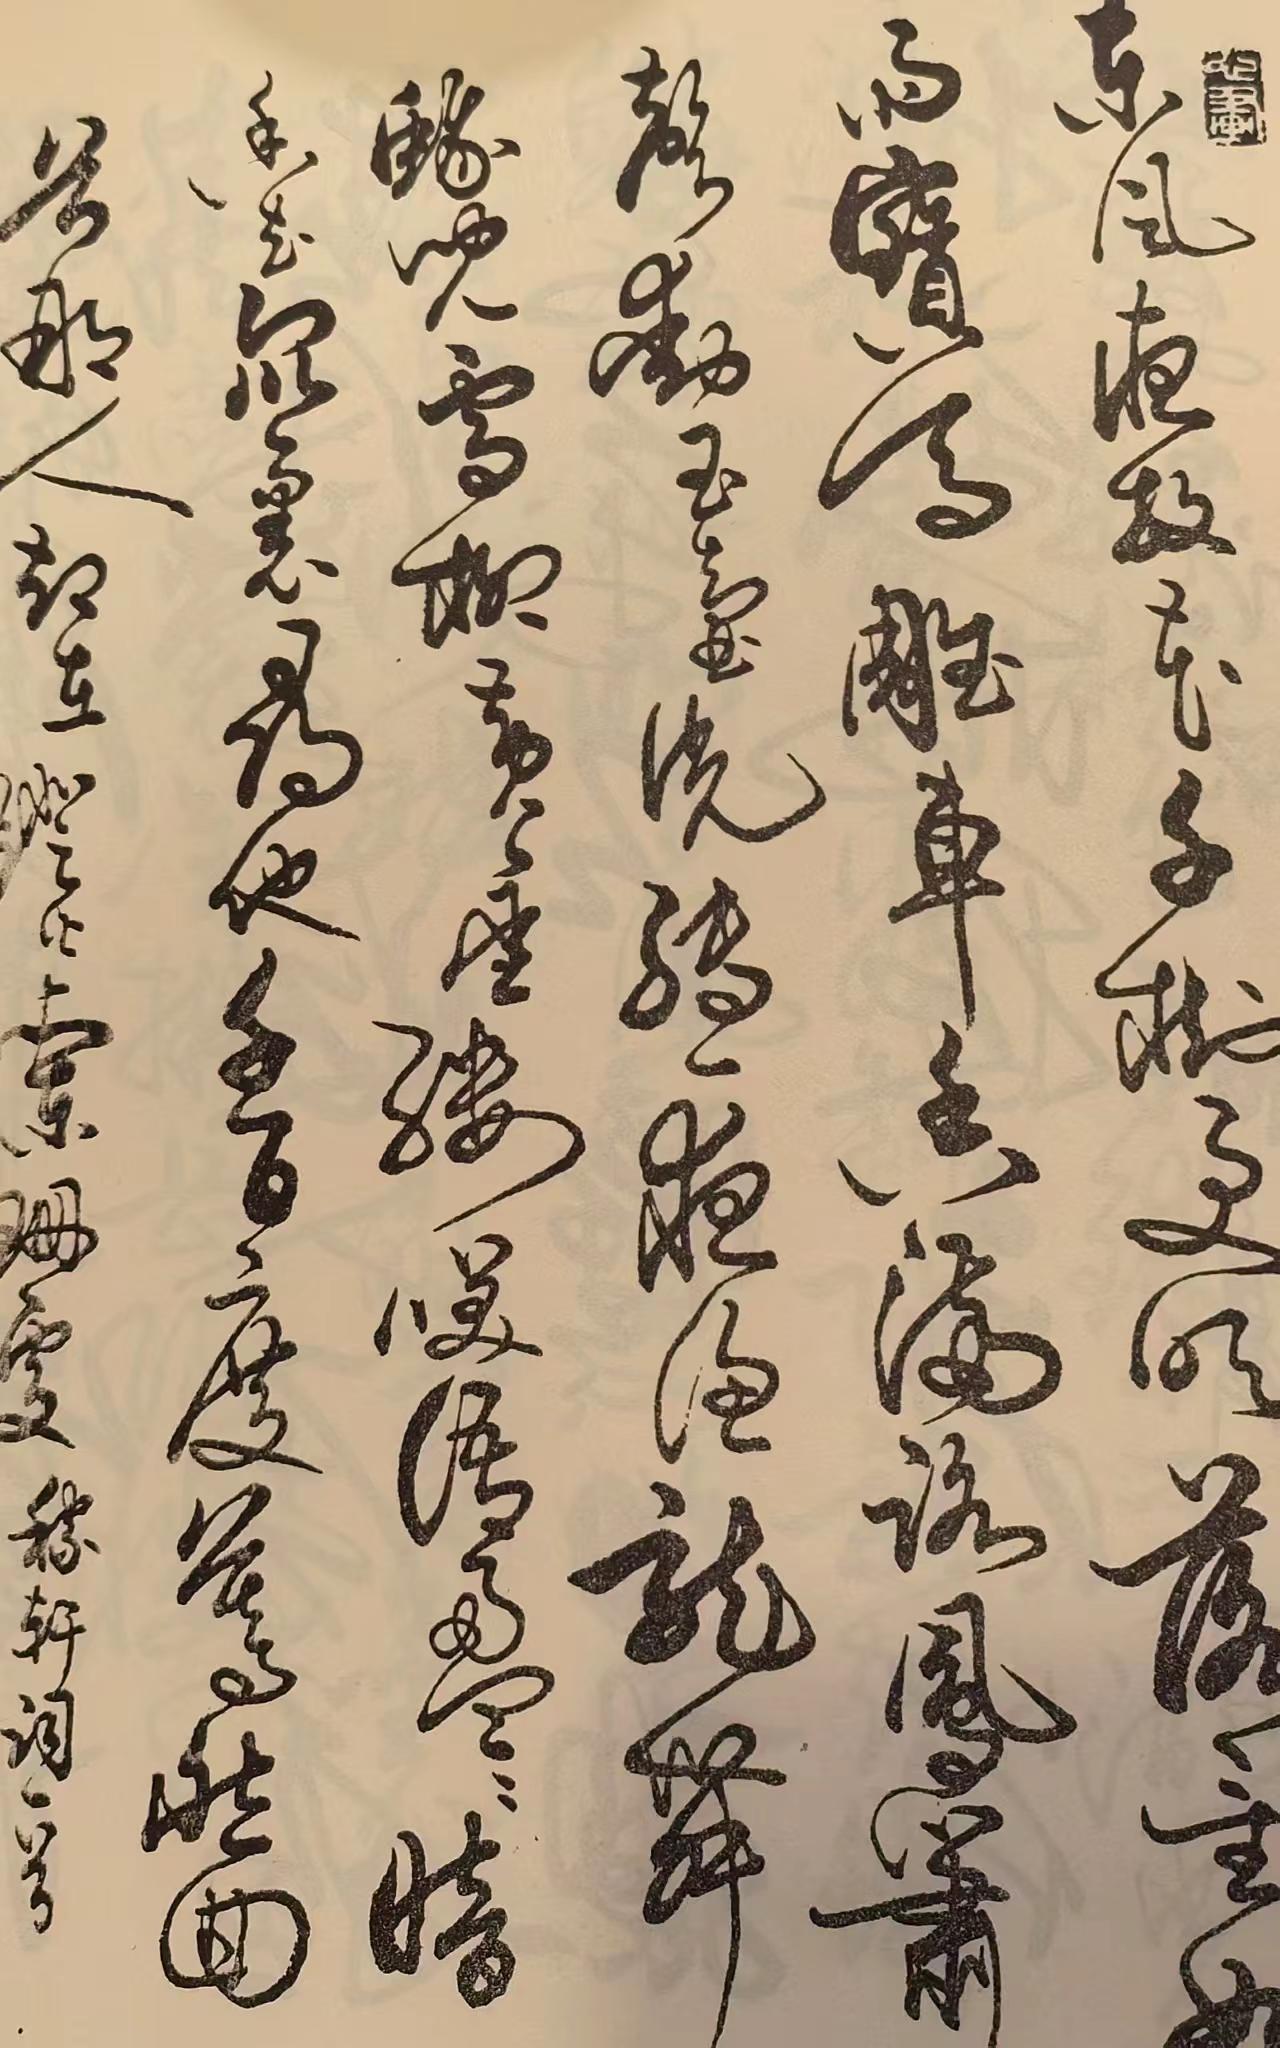 東風夜放花千樹更吹落星如
雨寶馬雕車香滿路鳳簫
聲動玉壺光轉一夜漁龍舞
蛾兒雪柳黃金縷笑語盈盈暗
香去眾裏尋他千百度驀然回
首那人卻在燈火闌珊處稼軒詞一首